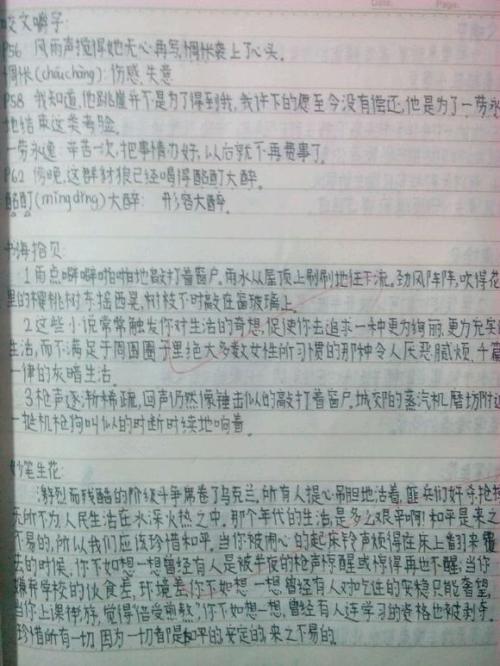 咬文嚼字:
P56 风雨声搅得她无心再写,惆怅袭上了心头。
惆怅(chóuchàng):伤感,失意
P58 我知道,他跳崖并不是为了得到我,我许下的愿至今没有偿还,他是为了一劳永
地结束这类考验。
一劳永逸:辛苦一次,把事情办好,以后就不再费事了。
P62 傍晚,这群豺狼已经喝得酩酊大醉。
酩酊(mǐngdǐng)大醉: 形容大醉。
书海拾贝:
1 雨点噼噼啪啪地敲打着窗户。雨水从屋顶上刷刷地往下流。劲风阵阵,吹得花
里的樱桃树东摇西晃,树枝不时敲在窗玻璃上。
2 这些小说常常触发你对生活的奇想,促使你去追求一种更为绚丽,更为
生活,而不满足于周围圈子里绝大多数女性所习惯的那种令人厌恶腻烦,千篇
一律的灰暗生活。
3 枪声逐渐稀疏,回声仍然像锤击似的敲打着窗户。城郊的蒸汽机磨坊附近
一挺机枪狗叫似的时断时续地响着。
妙笔生花:
激烈而残酷的阶级斗争席卷了乌克兰,所有人提心吊胆地活着,匪兵们奸夺抢
无所不为人民生活在水深火热之中。那个年代的生活,是多么艰辛啊!和平是来之
不易的,所以我们应该珍惜和平。当你被闹心的起床铃声烦得在床上翻来覆
去的时候,你不如想一想曾经有人是被半夜的枪声惊醒或惊得再也不醒;当你
嫌弃学校的伙食差,环境差,你不如想一想,曾经有人对吃住的安稳只能奢望,
当你上课徘游,觉得"倍受煎熬"你不如想一想,曾经有人连学习的资格也被剥夺。
珍惜所有一切,因为一切都是和平的安定的,来之不易的。